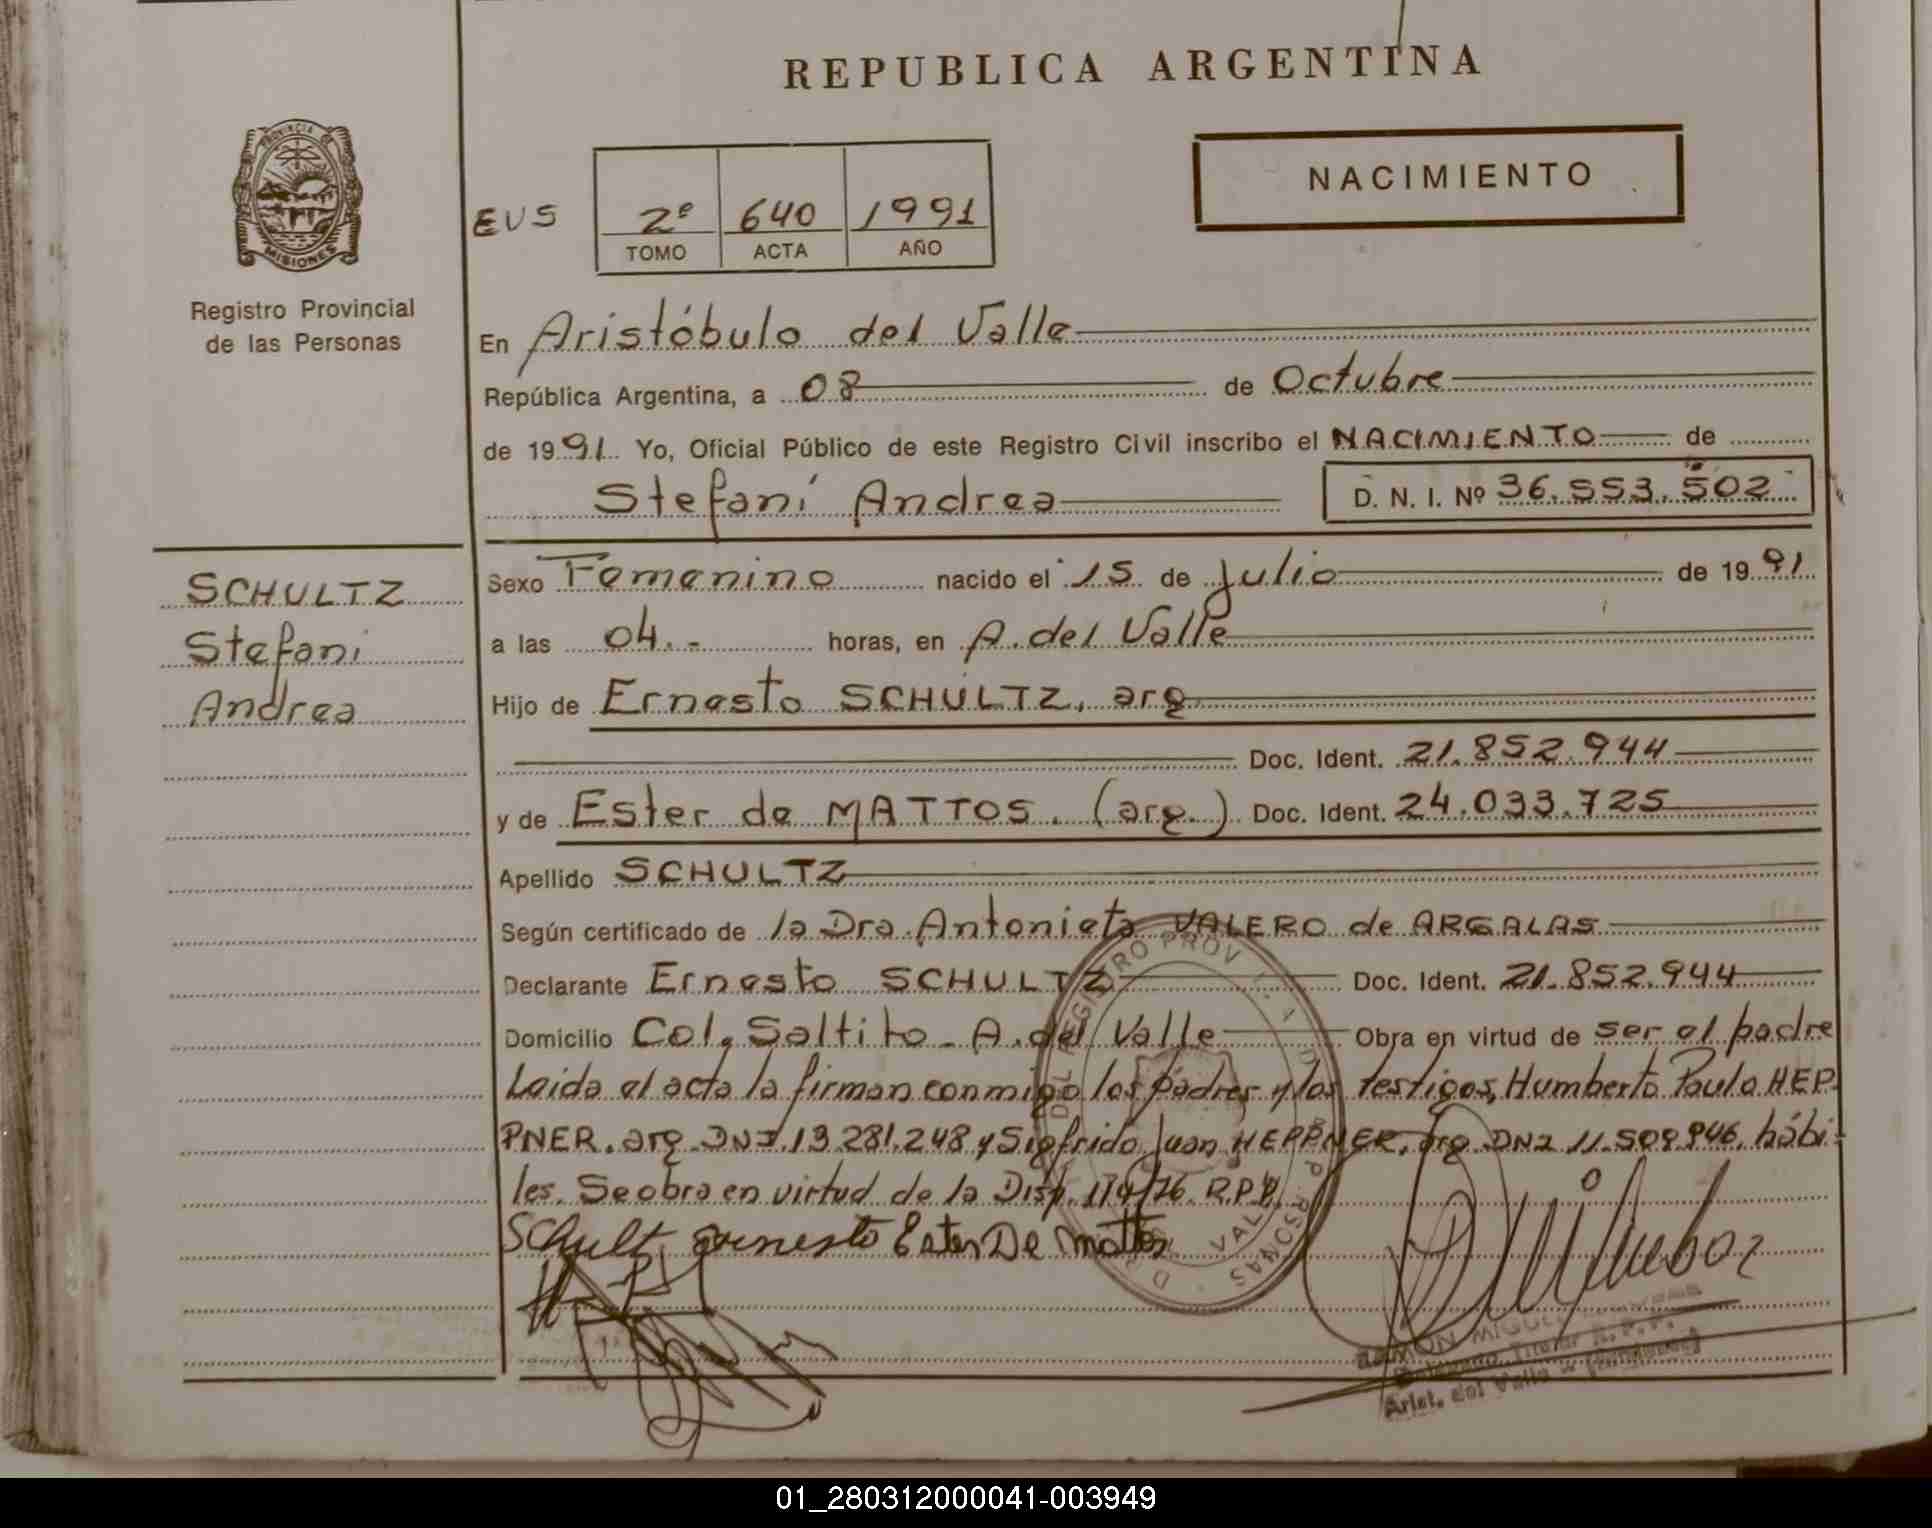 REPUBLICA ARGENTINA
PROVINCIA
MISIONES
Registro Provincial
de las Personas
NACIMIENTO
EUS 2º 640 1991
TOMO ACTA AÑO
En Aristóbulo del Valle
República Argentina, a 08 de Octubre
de 1991 Yo, Oficial Público de este Registro Civil inscribo el NACIMIENTO de
Stefaní Andrea D. N. I. Nº 36.553.502
SCHULTZ
Stefani
Andrea
Sexo Femenino nacido el 15 de Julio de 1991
a las 04.- horas, en A. del Valle
Hijo de Ernesto SCHULTZ, arg
Doc. Ident. 21.852.944
y de Ester de MATTOS. (arg.) Doc. Ident. 24.033.725
Apellido SCHULTZ
Según certificado de la Dra. Antonieta VALERO de ARGALAS
Declarante Ernesto SCHULTZ Doc. Ident. 21.852.944
Domicilio Col. Saltito - A. del Valle Obra en virtud de ser el padre
Leida el acta la firman conmigo los padres y los testigos, Humberto Paulo HEP-
PNER. arg. DNI. 13.281.248 y Sigfrido Juan HEPPNER, arg. DNI 11.509.946. hábi-
les. Se obra en virtud de la Disp. 174/76. R.P.P.
Schult ernesto Ester De mattos
RAMON MIGUEL
Titular R. P. P.
Arist. del Valle
01_280312000041-003949